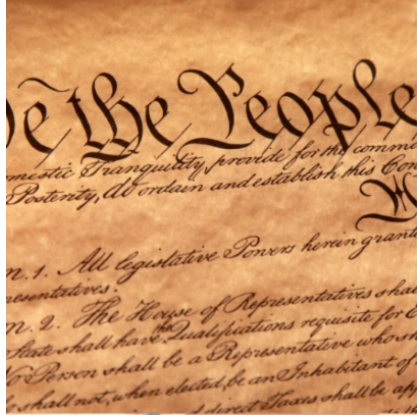 We the People
mestic Tranquility, provide for the comm
Posterity, do ordain and establish this Con
n. 1. All legislative Powers herein grante
resentatives.
n. 2. The House of Representatives shal
State shall have the Qualifications requisite for E
No Person shall be a Representative who sh
shall not, when elected, be an Inhabitant of
direct Taxes shall be ap